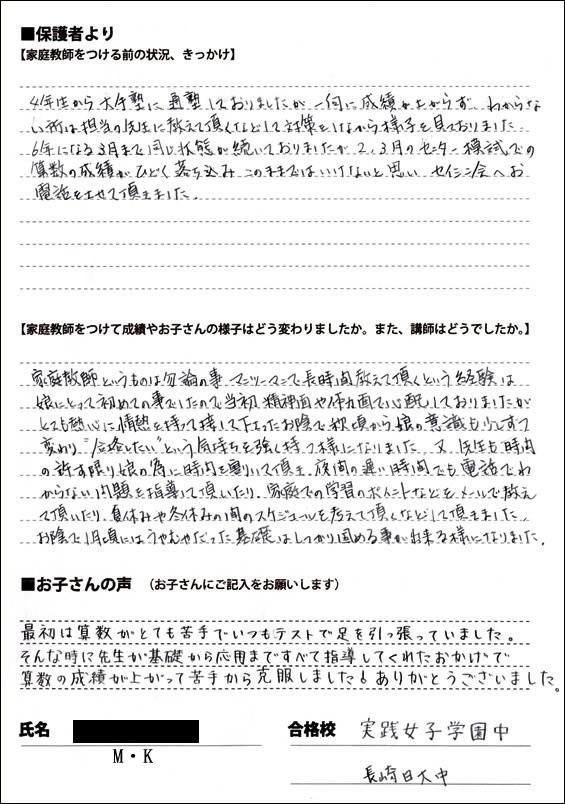 ■保護者より
【家庭教師をつける前の状況、きっかけ】
4年生から大手塾に通塾しておりましたが一向に成績が上がらず わからな
い所は担当の先生に教えて頂くなどして対策をしながら様子を見ておりました
6年になる3月まで同じ状態が続いておりましたが2,3月のセンター模試での
算数の成績がひどく落ち込み このままではいけないと思い セイシン会へお
電話をさせて頂きました.
【家庭教師をつけて成績やお子さんの様子はどう変わりましたか。また、講師はどうでしたか。】
家庭教師というものは勿論の事 マンツーマンで長時間教えて頂くという経験は
娘にとって初めての事でしたので当初 精神面や体力面で心配しておりましたが
とても熱心に情熱を持って接して下さったお陰で秋頃から娘の意識も少しずつ
変わり "合格したい" という気持ちを強く持つ様になりました 又 先生も時間
の許す限り娘の為に時間を割いて頂き、夜間の遅い時間でも電話でわ
からない問題を指導して頂いたり、家庭での学習のポイントなどをメールで教え
て頂いたり、夏休みや冬休みの間のスケジュールを考えて頂くなどして頂きました.
お陰で1月頃にはうやむやだった基礎はしっかり固める事が出来る様になりました.
■お子さんの声 （お子さんにご記入をお願いします）
最初は算数がとても苦手でいつもテストで足を引っ張っていました。
そんな時に先生が基礎から応用まですべて指導してくれたおかげで
算数の成績が上がって苦手から克服しました!ありがとうございました。
氏名 合格校 実践女子学園中
M・K
長崎日大中